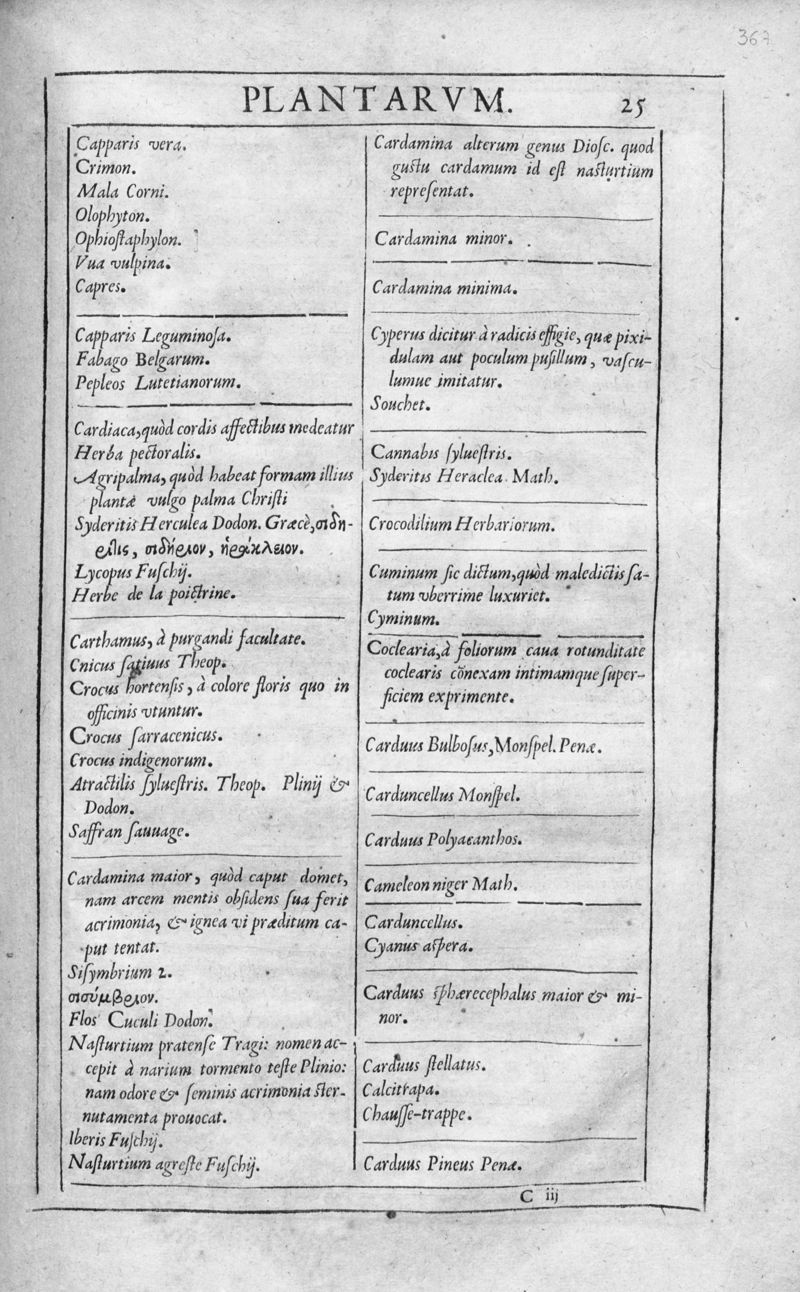 367
PLANTARVM.
25
Capparis vera.
Crimon.
Mala Corni.
Olophyton.
Ophioſtaphylon.
Vua vulpina.
Capres.
Capparis Leguminoſa.
Fabago Belgarum.
Pepleos Lutetianorum.
Cardiaca, quòd cordis affectibus medeatur
Herba pectoralis.
Agripalma, quòd habeat formam illius
plantæ vulgo palma Chriſti
Syderitis Herculea Dodon. Græcè, σιδη-
ρῖτις, σιδήριον, ἡράκλειον.
Lycopus Fuſchij.
Herbe de la poictrine.
Carthamus, à purgandi facultate.
Cnicus ſatiuus Theop.
Crocus hortenſis, à colore floris quo in
officinis vtuntur.
Crocus ſarracenicus.
Crocus indigenorum.
Atractilis ſylueſtris. Theop. Plinij &
Dodon.
Saffran ſauuage.
Cardamina maior, quòd caput domet,
nam arcem mentis obſidens ſua ferit
acrimonia, & ignea vi præditum ca-
put tentat.
Siſymbrium 2.
σισύμβριον.
Flos Cuculi Dodon.
Naſturtium pratenſe Tragi: nomen ac-
cepit à narium tormento teſte Plinio:
nam odore & ſeminis acrimonia ſter-
nutamenta prouocat.
Iberis Fuſchij.
Naſturtium agreſte Fuſchij.
Cardamina alterum genus Dioſc. quod
guſtu cardamum id eſt naſturtium
repreſentat.
Cardamina minor.
Cardamina minima.
Cyperus dicitur à radicis effigie, quæ pixi-
dulam aut poculum puſillum, vaſcu-
lumue imitatur.
Souchet.
Cannabis ſylueſtris.
Syderitis Heraclea Math.
Crocodilium Herbariorum.
Cuminum ſic dictum, quòd maledictis ſa-
tum vberrime luxuriet.
Cyminum.
Coclearia, à foliorum caua rotunditate
coclearis cõnexam intimamque ſuper-
ficiem exprimente.
Carduus Bulboſus, Monſpel. Penæ.
Carduncellus Monſpel.
Carduus Polyacanthos.
Cameleon niger Math.
Carduncellus.
Cyanus aſpera.
Carduus ſphærecephalus maior & mi-
nor.
Carduus ſtellatus.
Calcitrapa.
Chauſſe-trappe.
Carduus Pineus Penæ.
C iij